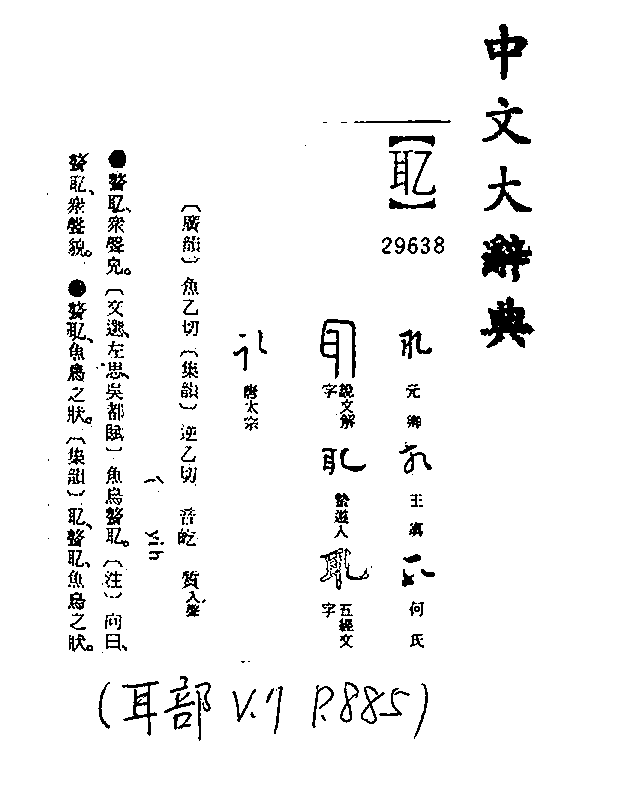 中文大辭典
【耴】
29638
元鄉
王真
何氏
說文解字
紮遊人
五經文字
唐太宗
〔廣韻〕魚乙切〔集韻〕逆乙切 音屹 質入聲
yih
●聱耴、衆聲皃。〔文選、左思、吳都賦〕魚鳥聱耴。〔注〕向曰、
聱耴、衆聲貌。●聱耴、魚鳥之狀。〔集韻〕耴、聱耴、魚鳥之狀。
(耳部 V.7 P.885)